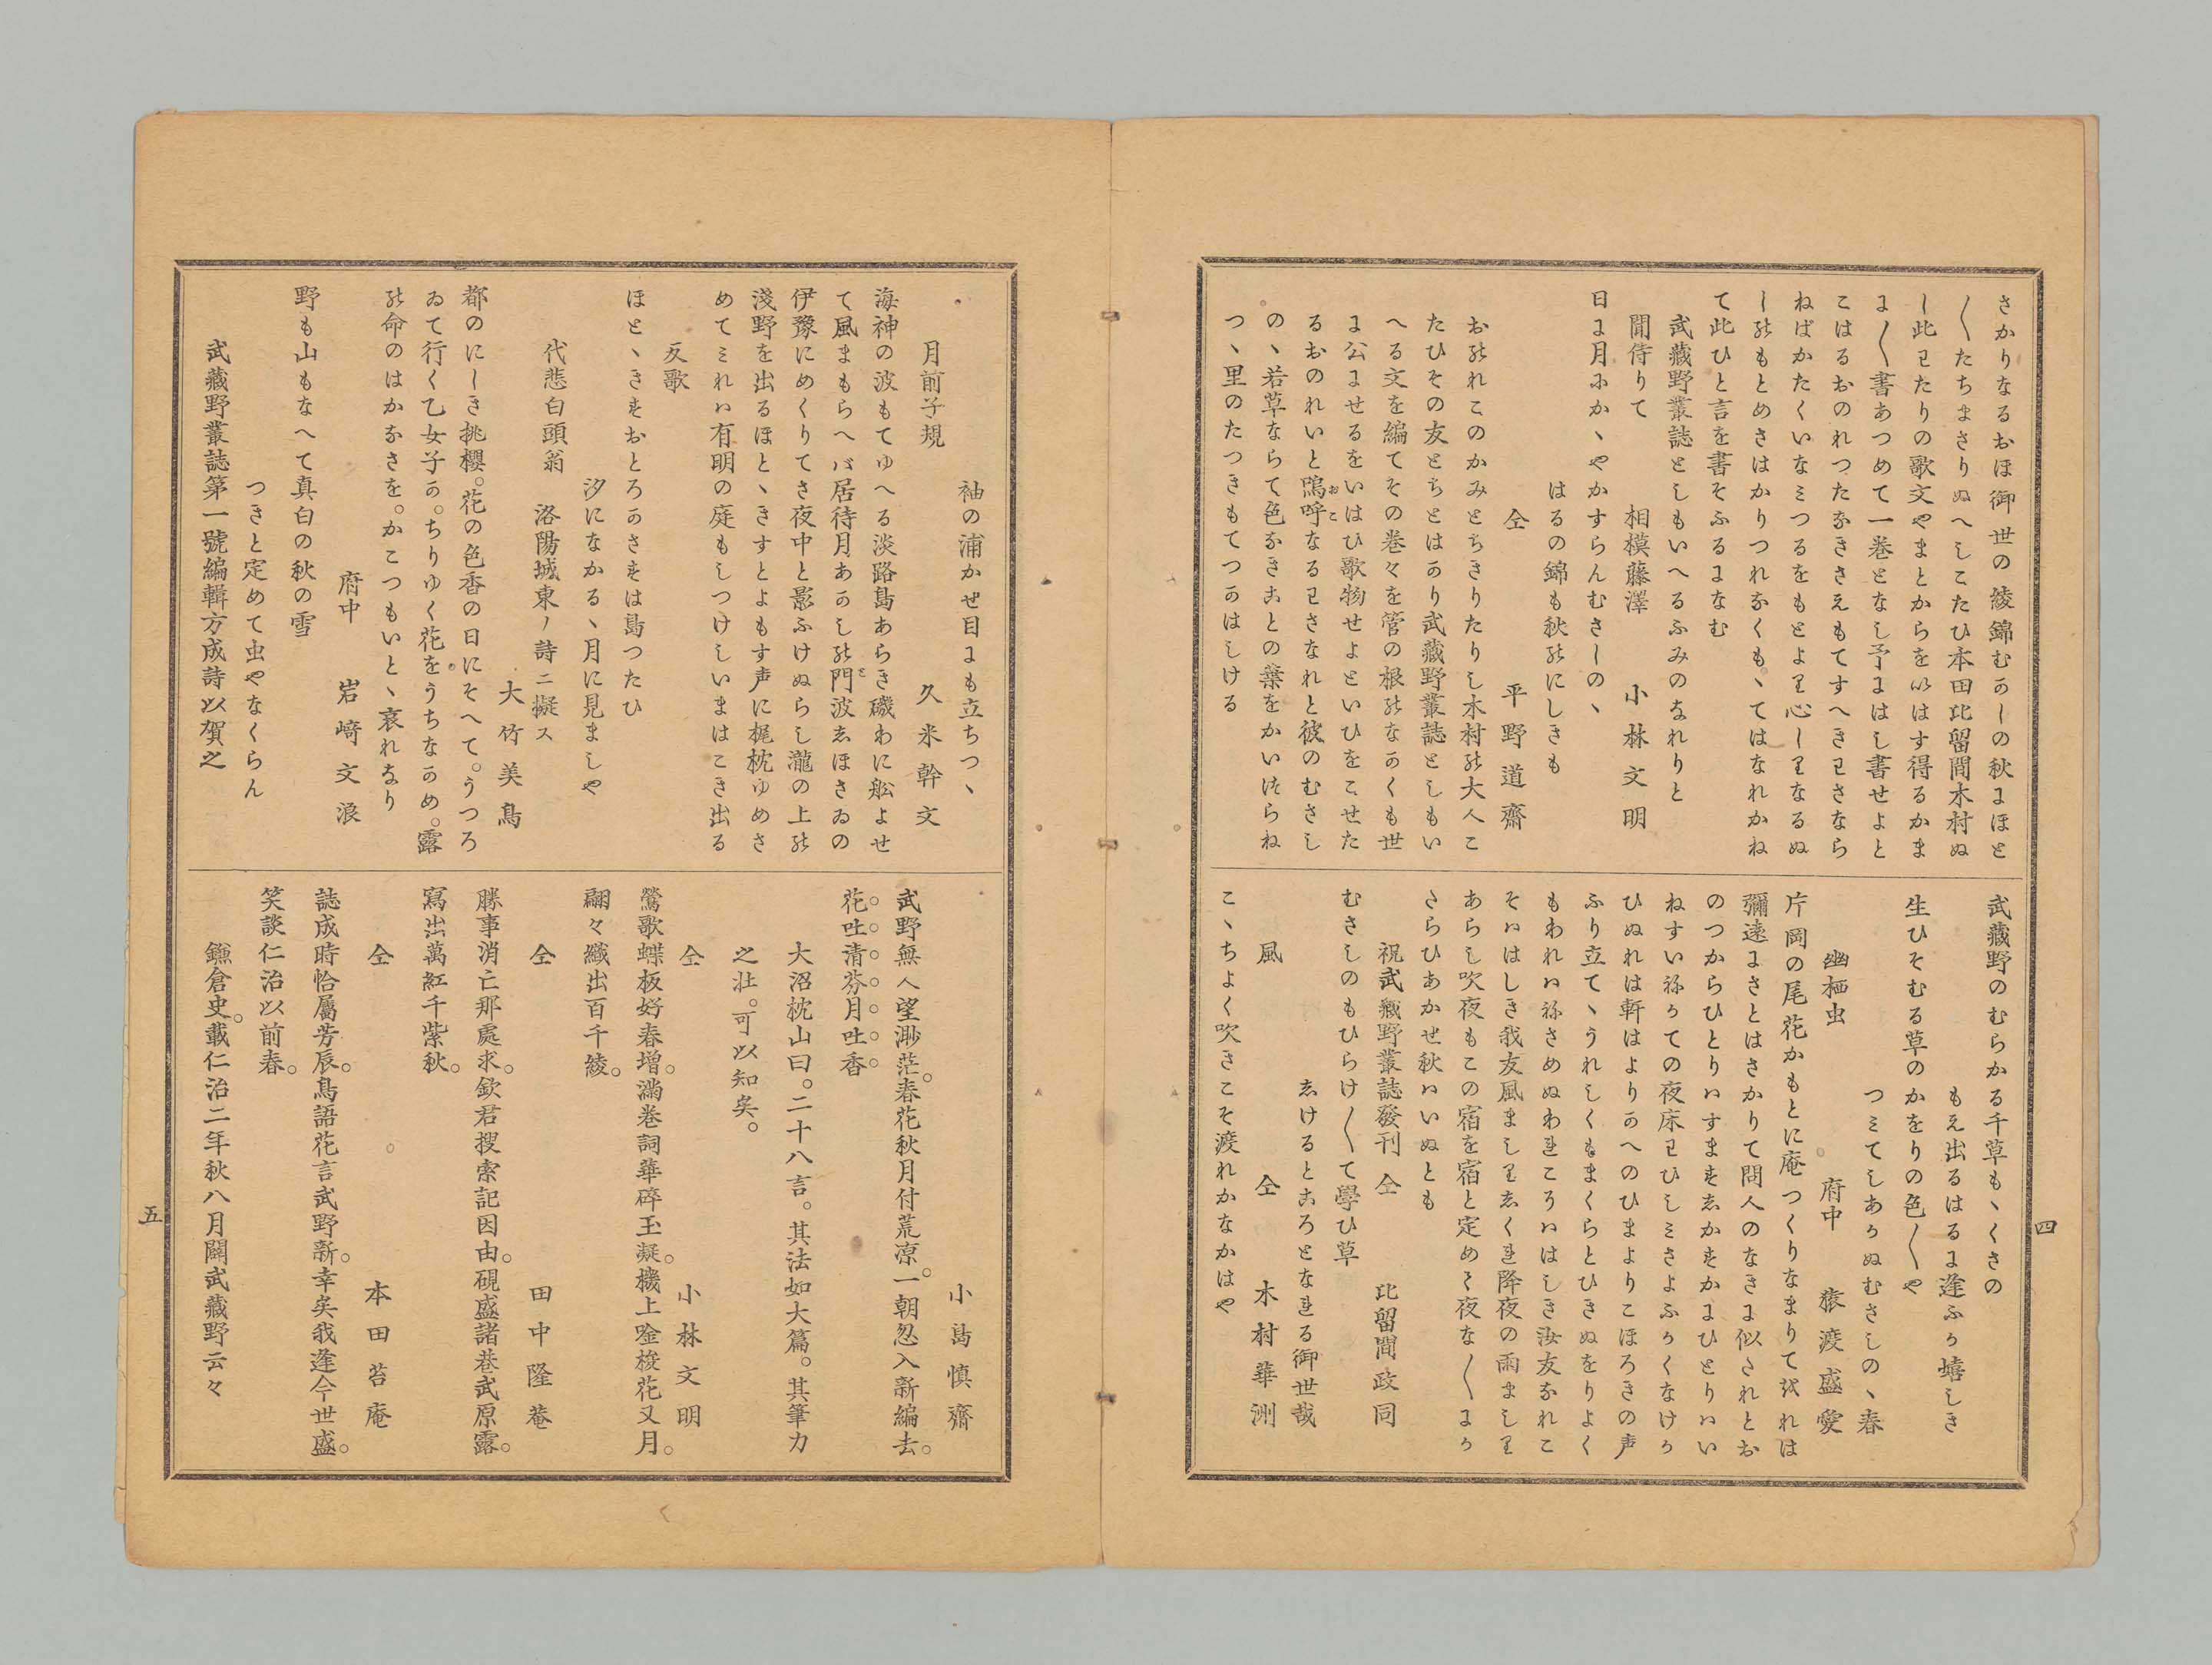 さかりなるおほ御世の綾錦むかしの秋にほと
〱たちまさりぬへしこたひ本田比留間木村ぬ
し此わたりの歌文やまとからをいはす得るかま
に〱書あつめて一巻となし予にはし書せよと
こはるおのれつたなきさえもてすへきわさなら
ねばかたくいなみつるをもとより心しりなるぬ
しのもとめさはかりつれなくもゝてはなれかね
て此ひと言を書そふるになむ
武藏野叢誌としもいへるふみのなれりと
聞侍りて　相模藤澤　小林文明
日に月にかゝやかすらんむさしのゝ
はるの錦も秋のにしきも
仝　平野道齋
おのれこのかみとちきりたりし木村の大人こ
たひその友とちとはかり武藏野叢誌としもい
へる文を編てその巻々を管の根のなかくも世
に公にせるをいはひ歌物せよといひをこせた
るおのれいと嗚呼なるわさなれと彼のむさし
のゝ若草ならて色なきことの葉をかいつらね
つゝ里のたつきもてつかはしける
武藏野のむらかる千草もゝくさの
もえ出るはるに逢ふか嬉しき
生ひそむる草のかをりの色〱や
つみてしあかぬむさしのゝ春
幽栖虫　府中　猿渡盛愛
片岡の尾花かもとに庵つくりなまりて我れは
彌遠にさとはさかりて問人のなきに似されとお
のつからひとりはすますゑかすかにひとりはい
ねすい祢かての夜床わひしみさよふかくなけか
ひぬれは軒はよりかへのひまよりこほろきの声
ふり立てゝうれしくもまくらとひきぬをりよく
もわれは祢さめぬわれこうはしき汝友なれこ
そはしき我友風ましりゑくれ降夜の雨ましり
あらし吹夜もこの宿を宿と定めて夜な〱にか
さらひあかせ秋はいぬとも
祝武藏野叢誌發刊　仝　比留間政同
むさしのもひらけ〱て學ひ草
ゑけるところとなれる御世哉
風　仝　木村華洲
こゝちよく吹きこそ渡れかなかはや
四
袖の浦かせ目にも立ちつゝ
月前子規　久米幹文
海神の波もてゆへる淡路島あらき磯わに舩よせ
て風まもらへバ居待月あかしの門波ゑほさゐの
伊豫にめくりてさ夜中と影ふけぬらし瀧の上の
淺野を出るほとゝきすとよもす声に梶枕ゆめさ
めてみれは有明の庭もしつけしいまはこき出る
反歌
ほとゝきすおとろかさすは島つたひ
汐になかるゝ月に見ましや
代悲白頭翁　洛陽城東ノ詩ニ擬ス
大竹美鳥
都のにしき挑櫻。花の色香の日にそへて。うつろ
ゐて行く乙女子か。ちりゆく花をうちなかめ。露
の命のはかなさを。かこつもいとゝ哀れなり
府中　岩﨑文浪
野も山もなへて真白の秋の雪
つきと定めて虫やなくらん
武藏野叢誌第一號編輯方成詩以賀之
小島慎齋
武野無人望渺茫。春花秋月付荒凉。一朝忽入新編去。
花吐清芬月吐香
大沼枕山曰。二十八言。其法如大篇。其筆力
之壯。可以知矣。
仝　小林文明
鶯歌蝶板好春增。滿巻詞華碎玉凝。機上唫梭花又月。
翩々織出百千綾。
仝　田中隆菴
勝事消亡那處求。欽君搜索記因由。硯盛諸巷武原露。
寫出萬紅千紫秋。
仝　本田苔庵
誌成時恰屬芳辰。鳥語花言武野新。幸矣我逢今世盛。
笑談仁治以前春。
鎌倉史。載仁治二年秋八月闢武藏野云々
五